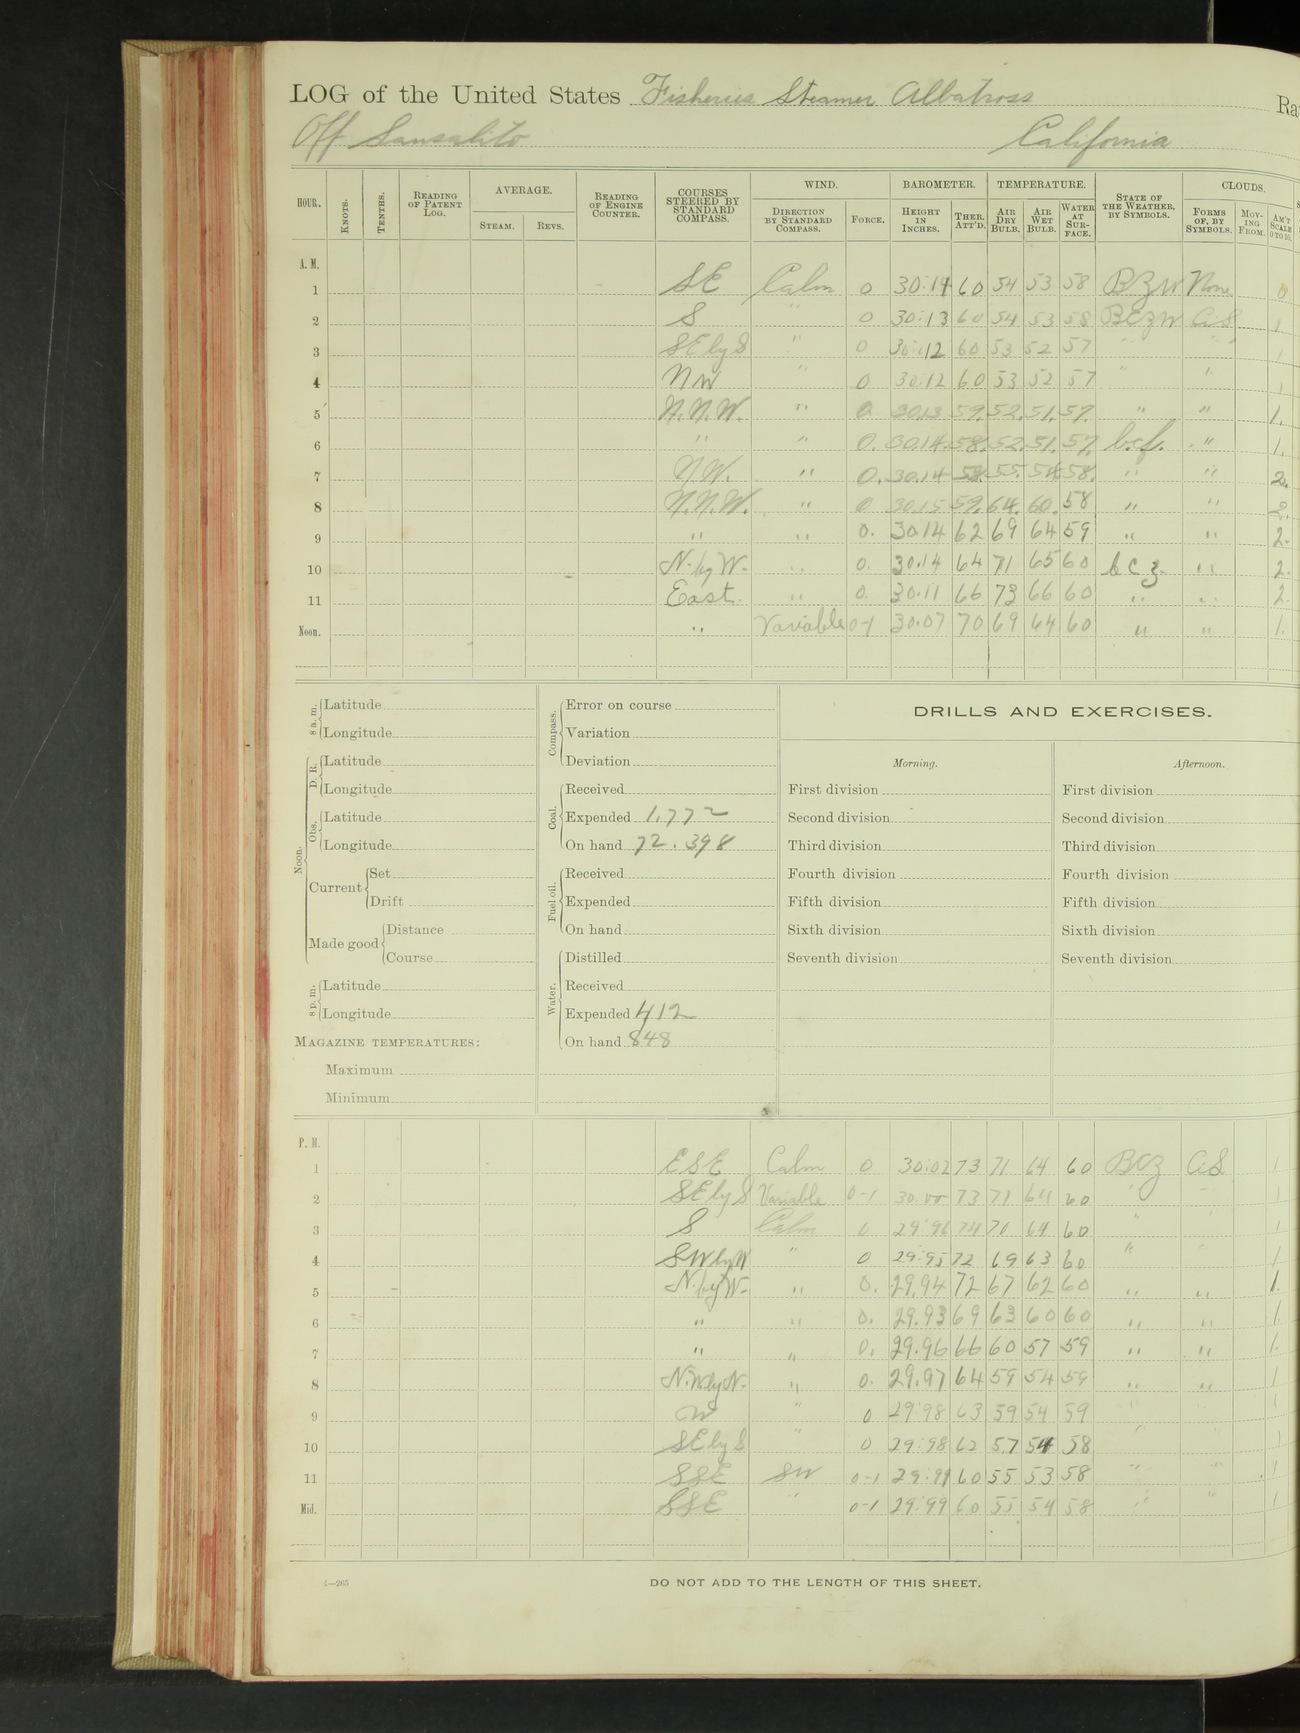 LOG of the United States Fisheries Steamer Albatross Ra
Off Sausalito California
HOUR. KNOTS. TENTHS. READING OF PATENT LOG. AVERAGE. STEAM. REVS. READING OF ENGINE COUNTER. COURSES STEERED BY STANDARD COMPASS. WIND. DIRECTION BY STANDARD COMPASS. FORCE. BAROMETER. HEIGHT IN INCHES. THER. ATT'D. TEMPERATURE. AIR DRY BULB. AIR WET BULB. WATER AT SURFACE. STATE OF THE WEATHER, BY SYMBOLS. CLOUDS. FORMS OF, BY SYMBOLS. MOVING FROM. AM'T SCALE 0 TO 10.
A. M.
1 SE Calm 0 30.14 60 54 53 58 BZW None 0
2 S " 0 30.13 60 54 53 58 BCZW 1
3 SE by S " 0 30.12 60 53 52 57 " " 1
4 NW " 0 30.12 60 53 52 57 " " 1
5 N.N.W. " 0 30.13 59. 52. 51. 57. " " 1.
6 " " 0. 30.14 58. 52. 51. 57. b.c.f. " 1.
7 N.W. " 0. 30.14 58. 55. 54. 58. " " 2.
8 N.N.W. " 0 30.15 59. 64. 60. 58 " " 2.
9 " " 0. 30.14 62 69 64 59 " " 2.
10 N. by W. " 0. 30.14 64 71 65 60 b c z " 2.
11 East. " 0. 30.11 66 73 66 60 " " 2.
Noon. " Variable 0-1 30.07 70 69 64 60 " " 1.
8 a. m. Latitude
Longitude
Noon. D. R. Latitude
Longitude
Obs. Latitude
Longitude
Current Set
Drift
Made good Distance
Course
8 p. m. Latitude
Longitude
MAGAZINE TEMPERATURES:
Maximum
Minimum
Compass. Error on course
Variation
Deviation
Coal. Received
Expended 1,772
On hand 72.398
Fuel oil. Received
Expended
On hand
Water. Distilled
Received
Expended 412
On hand 848
DRILLS AND EXERCISES.
Morning. Afternoon.
First division First division
Second division Second division
Third division Third division
Fourth division Fourth division
Fifth division Fifth division
Sixth division Sixth division
Seventh division Seventh division
P. M.
1 ESE Calm 0 30.02 73 71 64 60 BCZ 1
2 SE by S Variable 0-1 30.00 73 71 64 60 " " 1
3 S Calm 0 29.96 74 70 64 60 " " 1
4 SW by W " 0 29.95 72 69 63 60 " " 1
5 N. by W. " 0. 29.94 72 67 62 60 " " 1.
6 " " 0. 29.93 69 63 60 60 " " 1.
7 " " 0. 29.96 66 60 57 59 " " 1.
8 N.W. by N. " 0. 29.97 64 59 54 59 " " 1
9 W " 0 29.98 63 59 54 59 " " 1
10 SE by S " 0 29.98 62 57 54 58 " " 1
11 SSE SW 0-1 29.99 60 55 53 58 " " 1
Mid. SSE " 0-1 29.99 60 55 54 58 " " 1
4—265
DO NOT ADD TO THE LENGTH OF THIS SHEET.